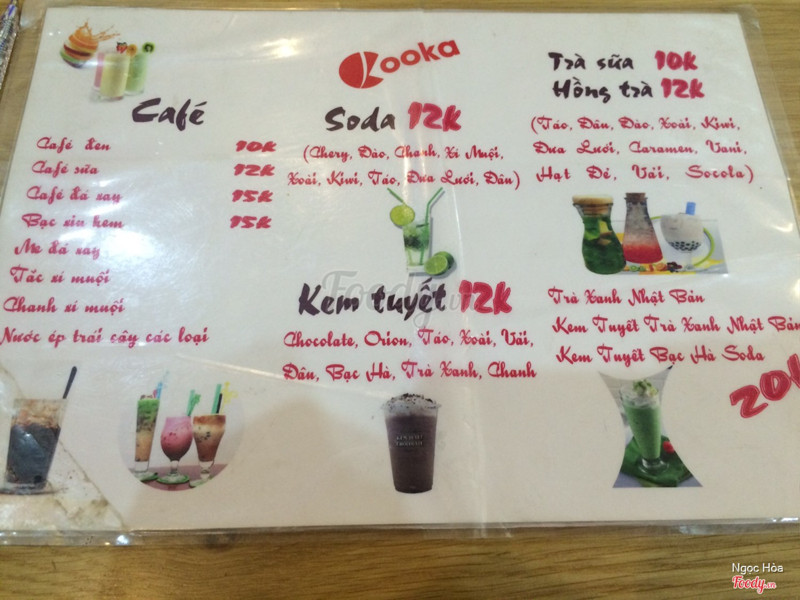 Kooka
Café
Café đen 10k
Café sữa 12k
Café đá xay 15k
Bạc xỉu kem 15k
Me đá xay
Tắc xí muội
Chanh xí muội
Nước ép trái cây các loại
Soda 12k
(Chery, Đào, Chanh, Xí Muội,
Xoài, Kiwi, Táo, Dưa Lưới, Dâu)
Kem tuyết 12k
Chocolate, Orion, Táo, Xoài, Vải,
Dâu, Bạc Hà, Trà Xanh, Chanh
Trà sữa 10k
Hồng trà 12k
(Táo, Dâu, Đào, Xoài, Kiwi,
Dưa Lưới, Caramen, Vani,
Hạt Dẻ, Vải, Socola)
Trà Xanh Nhật Bản
Kem Tuyết Trà Xanh Nhật Bản
Kem Tuyết Bạc Hà Soda
20k
Foody.vn
Ngọc Hòa
Foody.vn